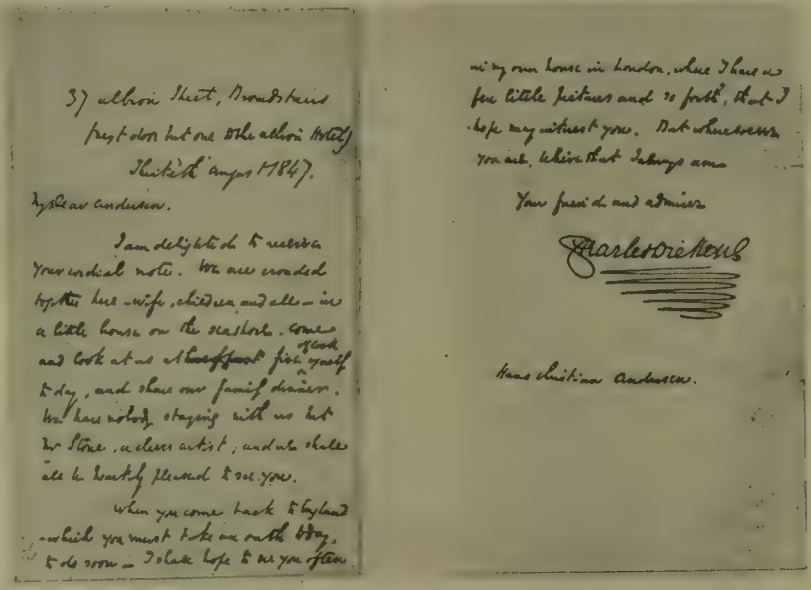 37 Albion Street, Broadstairs
(next door but one to the Albion Hotel)
Thirtieth August 1847.
My dear Andersen.
I am delighted to receive
your cordial note. We are crowded
together here - wife, children and all - in
a little house on the seashore. Come
and look at us at five o'clock
today, and share our family dinner.
We have nobody staying with us but
Mr Stone, a clever artist; and we shall
all be heartily pleased to see you.
When you come back to England
- which you must take an oath today,
to do soon - I shall hope to see you often
in my own house in London, where I have a
few little pictures and so forth, that I
hope may interest you. But wheresoever
you are, believe that I always am
Your friend and admirer
Charles Dickens
Hans Christian Andersen.